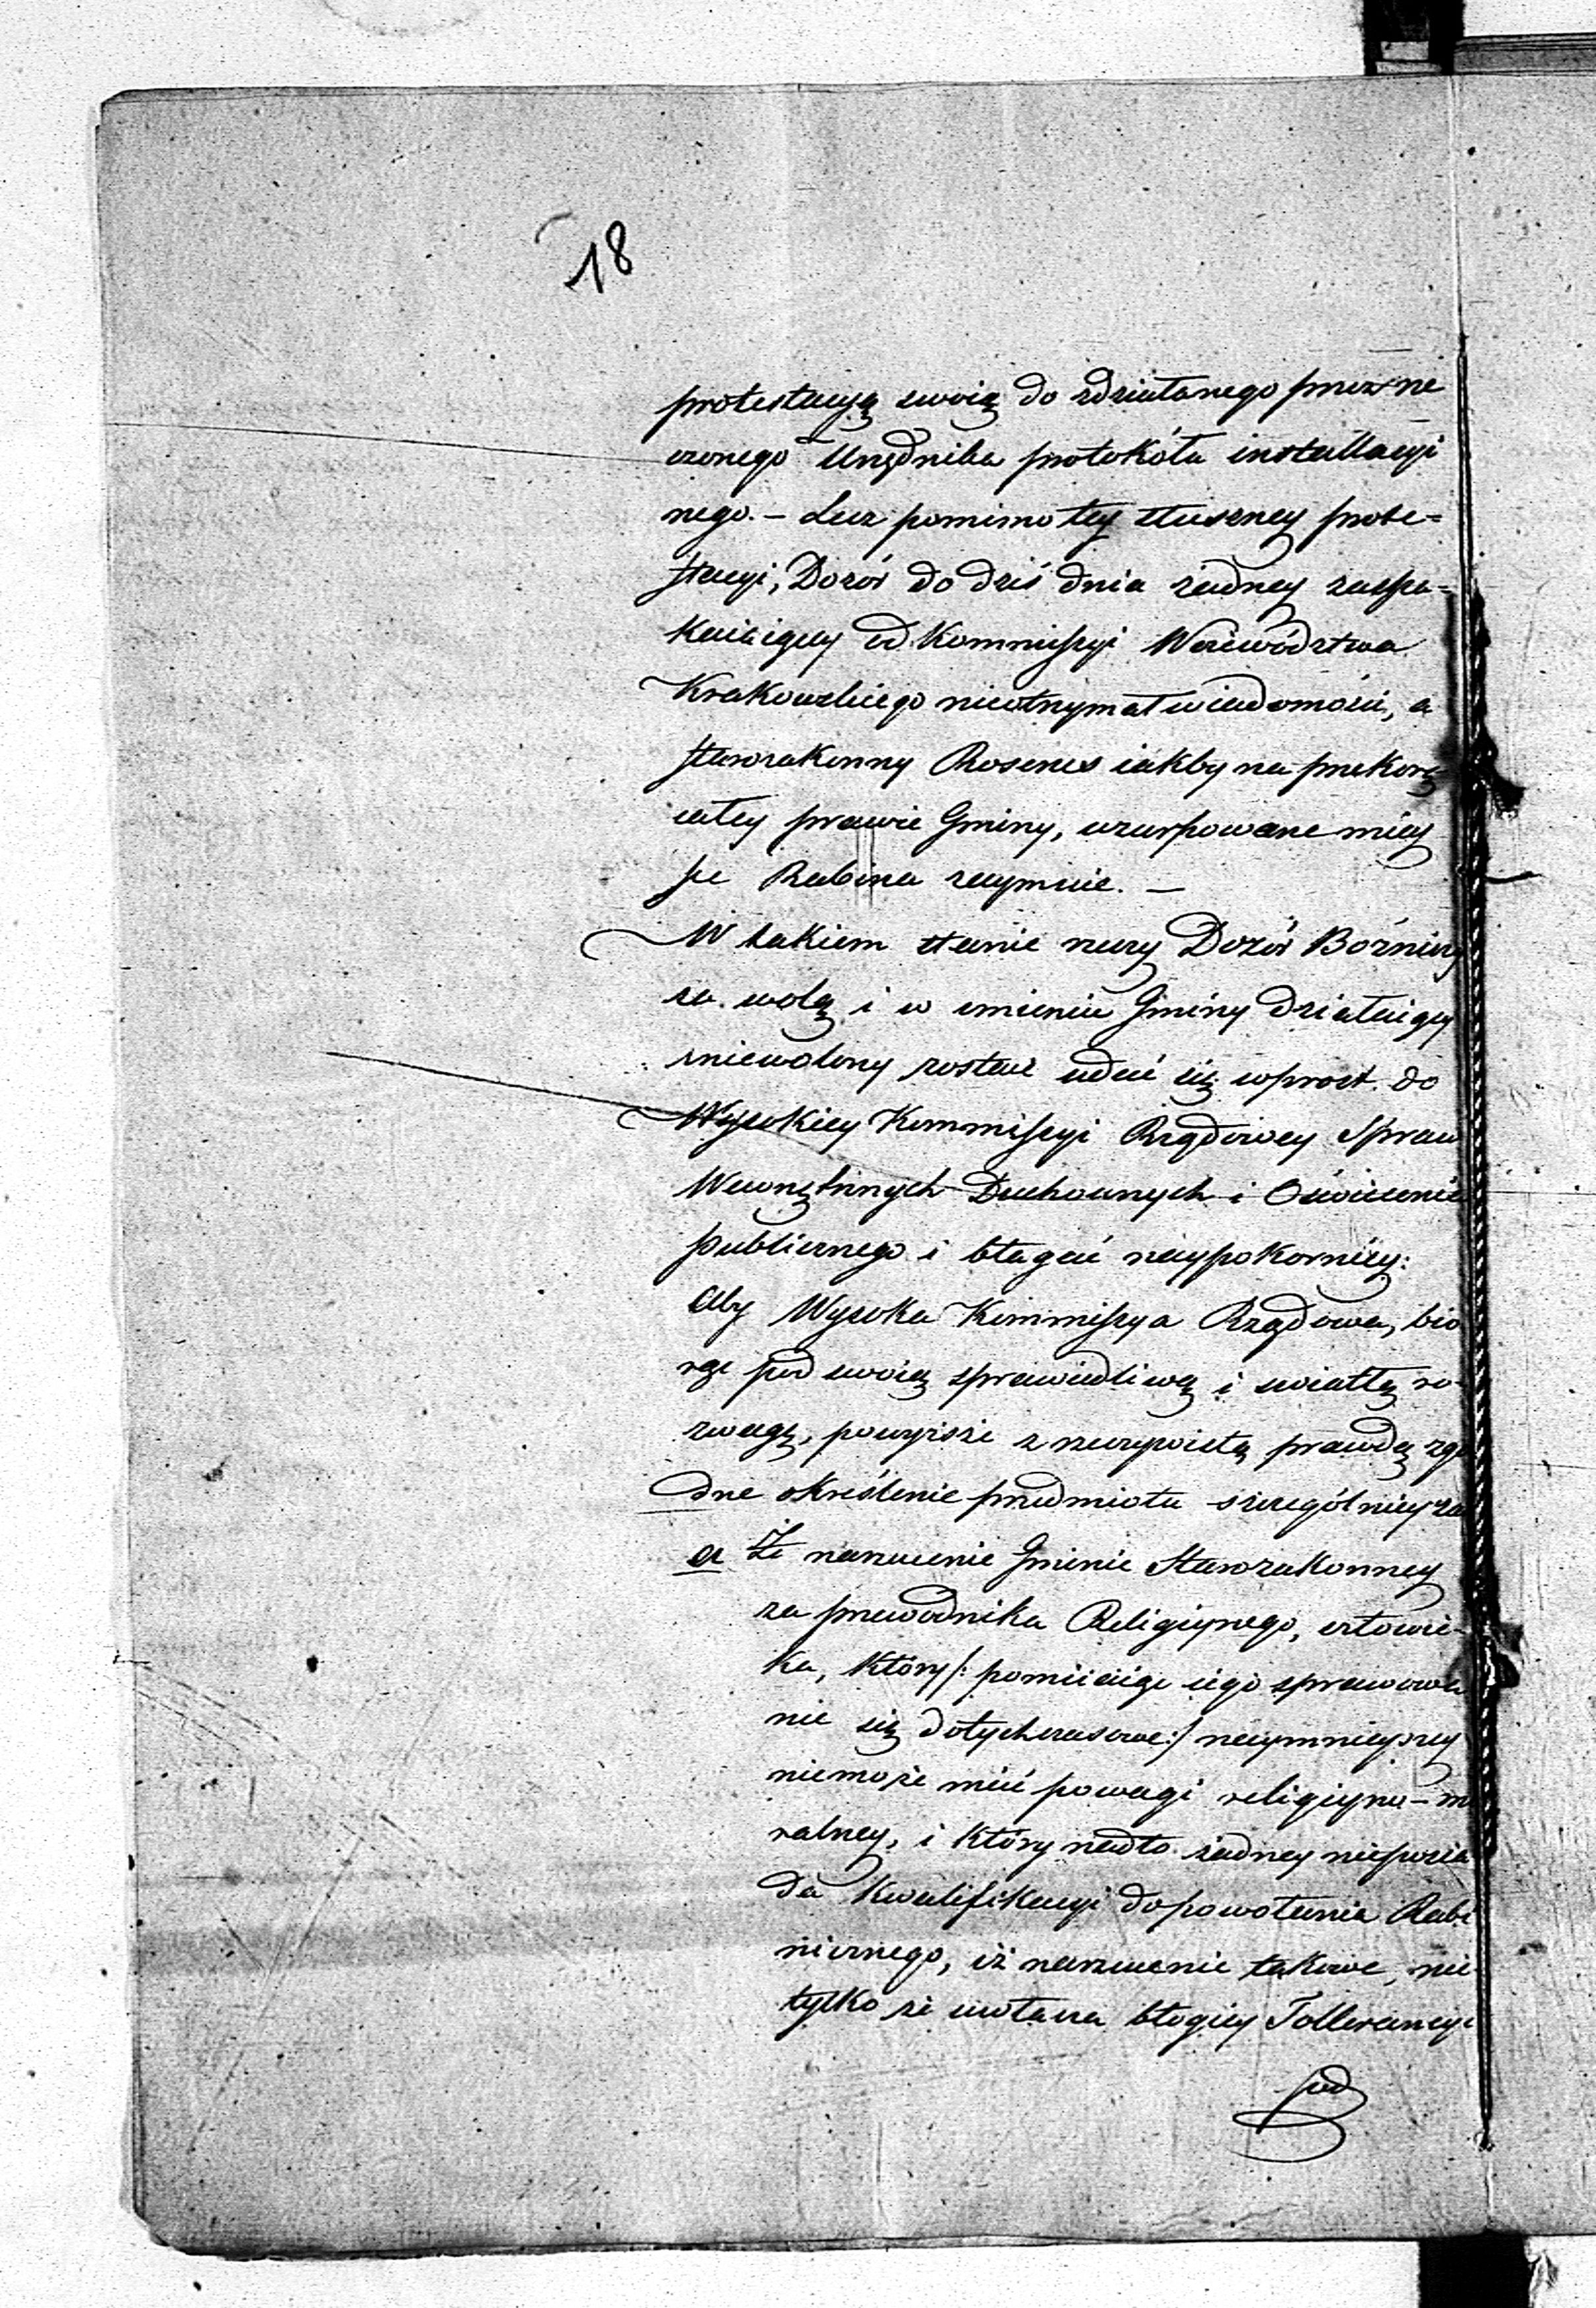 18
protestacyą swoię do zdziałanego przez rze
czonego Urzędnika protokółu installacyi
nego. – Lecz pomimo tey słuszney prote=
stacyi, Dozór do dziś dnia żadney zaspa=
kaiaiącey od Kommissyi Woiewództwa
Krakowskiego nieotrzymał wiadomości, a
starozakonny Rosenes iakby na przekorę
całey prawie Gminy, uzurpowane miey
sce Rabina zaymuie. –
W takiem stanie rzeczy Dozór Bóżniczy
za wolą i w imieniu Gminy działaiący
zniewolony został udać się wprost do
Wysokiey Kommissyi Rządowey Spraw
Wewnętrznych Duchownych i Oświecenia
publicznego i błagać naypokorniey:
Aby Wysoka Kommissya Rządowa, bio
rąc pod swoię sprawiedliwą i światłą ro-
zwagę, powyższe z rzeczywistą prawdą zgo
dne określenie przedmiotu szczególniey za
a Że narzucenie Gminie Starozakonney
za przewodnika Religiynego, człowie-
ka, który /: pomiiaiąc iego sprawowa
nie się dotychczasowe :/ naymnieyszey
niemoże mieć powagi religiyno – mo
ralney, i który nadto żadney nieposia
da kwalifikacyi do powołania Rabi
nicznego, iż narzucenie takowe, nie
tylko że uwłacza błogiey Tollerancyi
pod